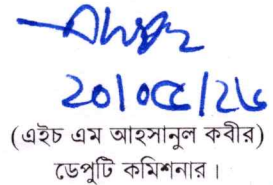 ২০/০৫/২৬
(এইচ এম আহসানুল কবীর)
ডেপুটি কমিশনার।